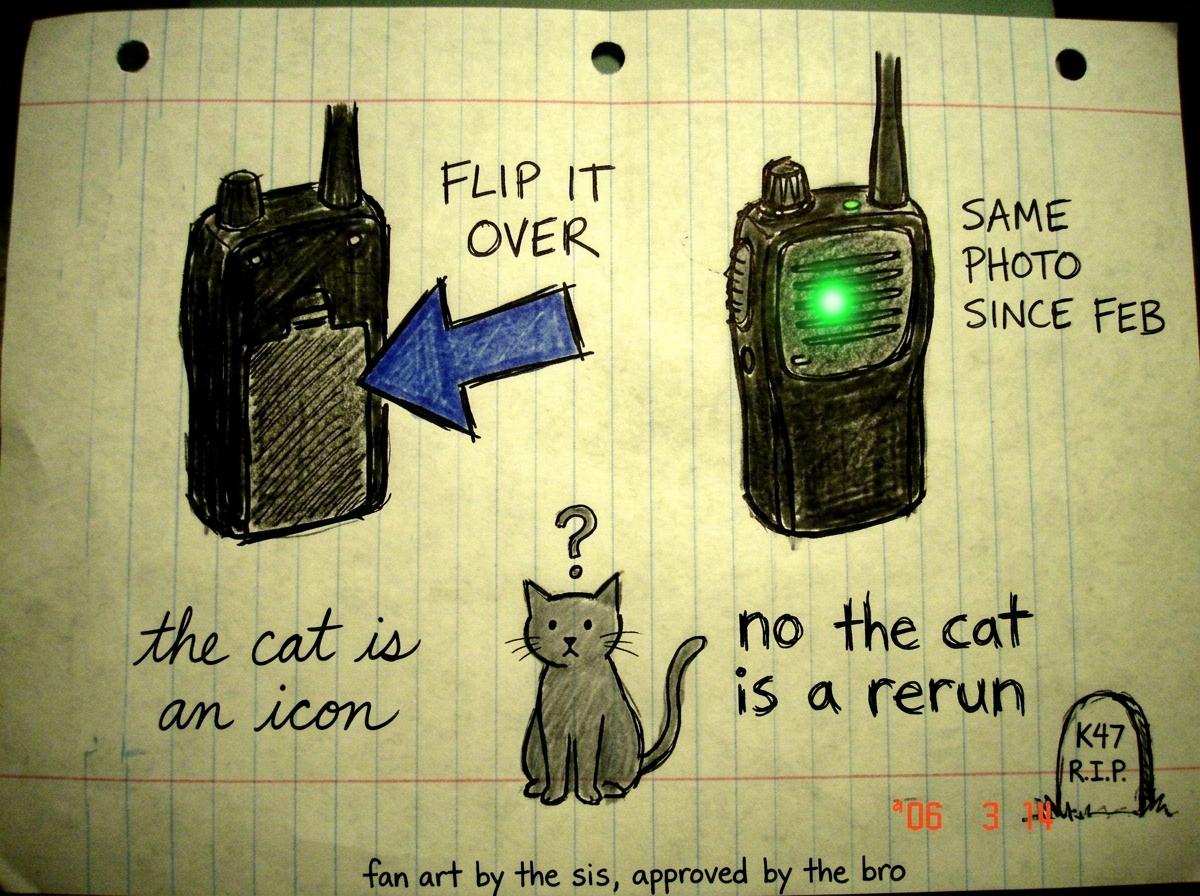 FLIP IT
OVER
SAME
PHOTO
SINCE FEB
?
the cat is
an icon
no the cat
is a rerun
K47
R.I.P.
'06 3 14
fan art by the sis, approved by the bro